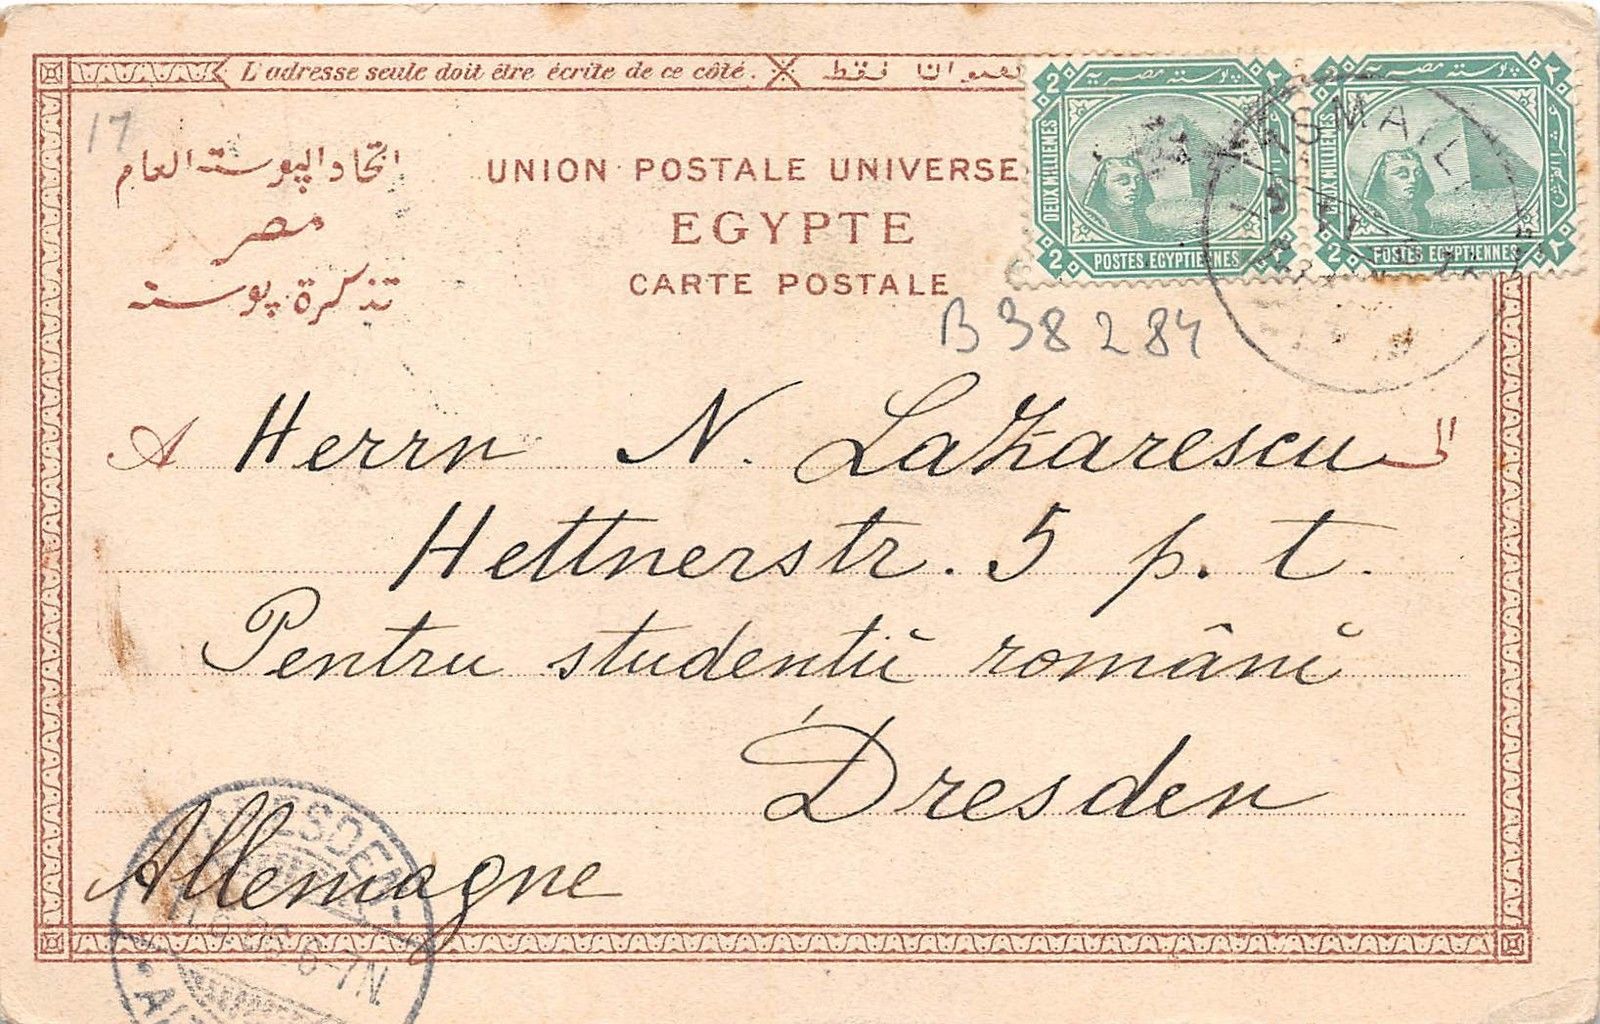 L'adresse seule doit être écrite de ce côté. فقط
17
اتحاد البوسته العام
مصر
تذكرة بوسته
UNION POSTALE UNIVERSE
EGYPTE
CARTE POSTALE
2 بوستة مصرية ٢
DEUX MILLIEMES
2 POSTES EGYPTIENNES
2 بوستة مصرية ٢
DEUX MILLIEMES
2 POSTES EGYPTIENNES ٢
ISMAIL
B 38 284
A Herrn N. Lazarescu الى
Hettnerstr. 5 p. t.
Pentru studentii români
Dresden
Allemagne
DRESDEN
6-7N.